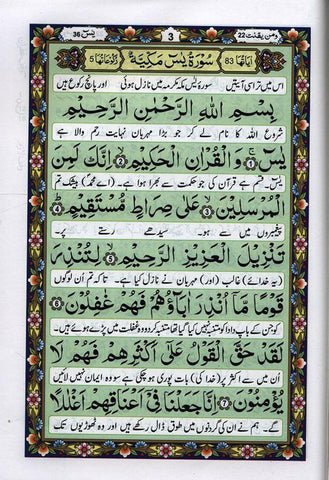 ومن یقنت 22
3
یٰسٓ 36
اٰیاتہا 83
سُوْرَةُ یٰسٓ مَکِّیَّةٌ
رکوعاتہا 5
اس میں تراسی آیتیں سورۂ یٰسٓ مکہ مکرمہ میں نازل ہوئی اور پانچ رکوع ہیں
بِسْمِ اللّٰهِ الرَّحْمٰنِ الرَّحِیْمِ
شروع اللہ کا نام لے کر جو بڑا مہربان نہایت رحم والا ہے
یٰسٓ ۚ﴿۱﴾ وَالْقُرْاٰنِ الْحَکِیْمِ ۙ﴿۲﴾ اِنَّکَ لَمِنَ
یٰسٓ۔ قسم ہے قرآن کی جو حکمت سے بھرا ہوا ہے۔ (اے محمدؐ) بیشک تم
الْمُرْسَلِیْنَ ۙ﴿۳﴾ عَلٰی صِرَاطٍ مُّسْتَقِیْمٍ ؕ﴿۴﴾
پیغمبروں میں سے ہو۔ سیدھے رستے پر۔
تَنْزِیْلَ الْعَزِیْزِ الرَّحِیْمِ ۙ﴿۵﴾ لِتُنْذِرَ
(یہ خدائے) غالب (اور) مہربان نے نازل کیا ہے۔ تاکہ تم اُن لوگوں
قَوْمًا مَّاۤ اُنْذِرَ اٰبَآؤُهُمْ فَهُمْ غٰفِلُوْنَ ﴿۶﴾
کو جن کے باپ دادا کو متنبہ نہیں کیا گیا تھا متنبہ کر دو وہ غفلت میں پڑے ہوئے ہیں۔
لَقَدْ حَقَّ الْقَوْلُ عَلٰۤی اَکْثَرِهِمْ فَهُمْ لَا
اُن میں سے اکثر پر (خدا کی) بات پوری ہو چکی ہے سو وہ ایمان نہیں لائیں
یُؤْمِنُوْنَ ﴿۷﴾ اِنَّا جَعَلْنَا فِیْۤ اَعْنَاقِهِمْ اَغْلٰلًا
گے۔ ہم نے ان کی گردنوں میں طوق ڈال رکھے ہیں اور وہ ٹھوڑیوں تک